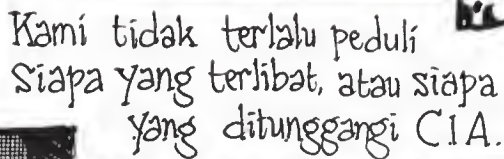 Kami tidak terlalu peduli
Siapa yang terlibat, atau siapa
yang ditunggangi CIA